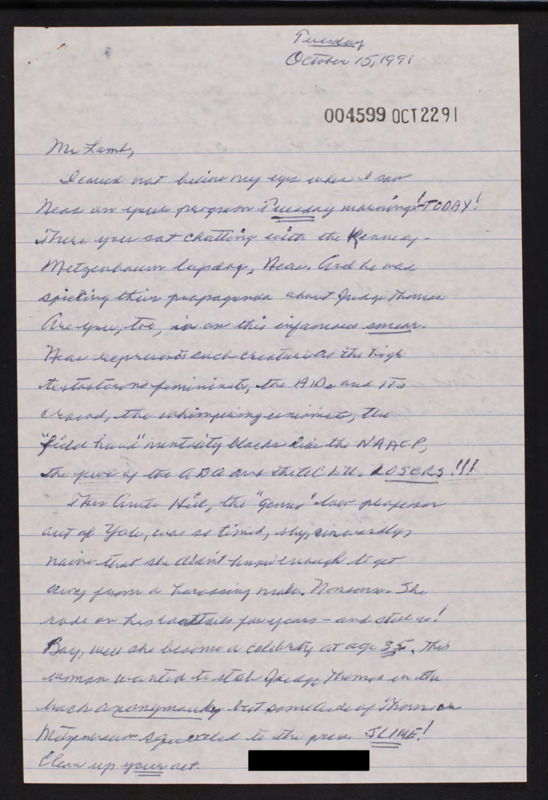 Tuesday
October 15, 1991
004599 OCT 22 91
Mr Lamb,
I could not believe my eyes when I saw
Neas on your program Tuesday morning! - TODAY!
There you sat chatting with the Kennedy-
Metzenbaum lapdog, Neas. And he was
their propaganda about Judge Thomas
Are you, too, in on this infamous smear.
Neas represents such creatures as the high
testosterone femininists, the AIDs and its
crowd, the whimpering unionists, the
"field hand" mentality blacks in the NAACP,
the jews of the ADA and the ACLU. LOSERS!!!
This Anita Hill, the "genius" law professor
out of Yale, was so timid, shy,
naive that she didn't know enough to get
away from a harassing male. Nonsense. She
rode on his coattails for years - and still is!
Boy, will she become a celebrity at age 35. This
woman wanted to stab Judge Thomas in the
back anonymously but some aide of
Metzenbaum squealed to the press SLIME!
Clean up your act.